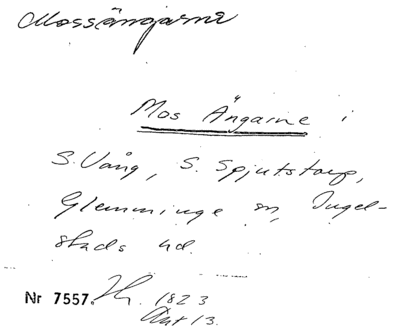 Mossängarne
Mos Ängarne i
S. Vång, S. Spjutstorp,
Glemminge sn, Ingel-
stads hd.
Nr 7557. Th. 1823
Ant 13.